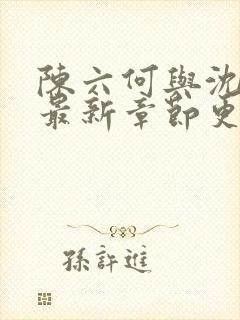 陳六何與沈
最新章節更
孫許進